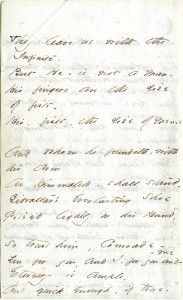 They leave us with the
Infinite.
But He - is not a man -
His fingers are the size
of fists -
His fists, the size of men -
And whom he foundeth, with
his Arm
As Himmaleh, shall stand -
Gibraltar's everlasting Shoe
Poised lightly on his Hand,
So trust him, Comrade -
You for you, and I, for you and me
Eternity is ample,
And quick enough, if true.